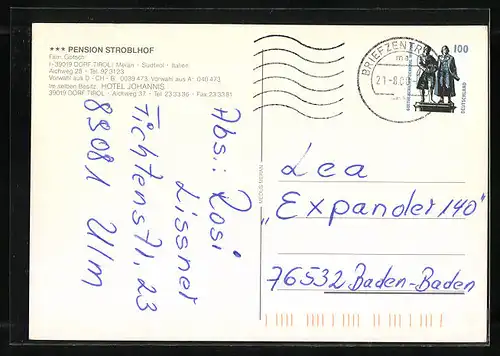 *** PENSION STROBLHOF
Fam. Götsch
I-39019 DORF TIROL / Meran - Südtirol - Italien
Aichweg 28 - Tel. 92 31 23
Vorwahl aus D - CH - B: 0039 473, Vorwahl aus A: 040 473
Im selben Besitz: HOTEL JOHANNIS
39019 DORF TIROL - Aichweg 37 - Tel 23 33 86 - Fax 23 33 81
Abs.: Rosi
Lissner
Fichtenstr. 23
89081 Ulm
BRIEFZENTRUM
21-8.00
100
DEUTSCHLAND
Lea
„Expander 140"
76532 Baden-Baden